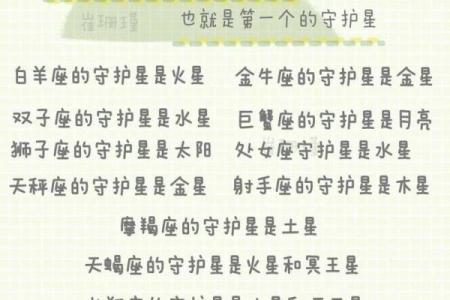 崔珊瑾
也就是第一个的守护星
白羊座的守护星是火星 金牛座的守护星是金星
双子座的守护星是水星 巨蟹座的守护星是月亮
狮子座的守护星是太阳 处女座守护星是水星
天秤座的守护星是金星 射手座的守护星是木星
摩羯座的守护星是土星
天蝎座的守护星是火星和冥王星